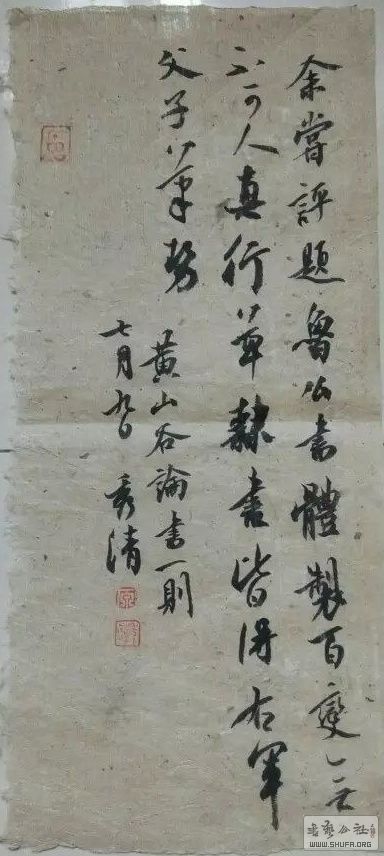 余嘗評題魯公書體製百變无
不可人真行草隸書皆得右軍
父子筆勢
黃山谷論書一則
七月九日 清
书艺公社
WWW.SHUFA.ORG